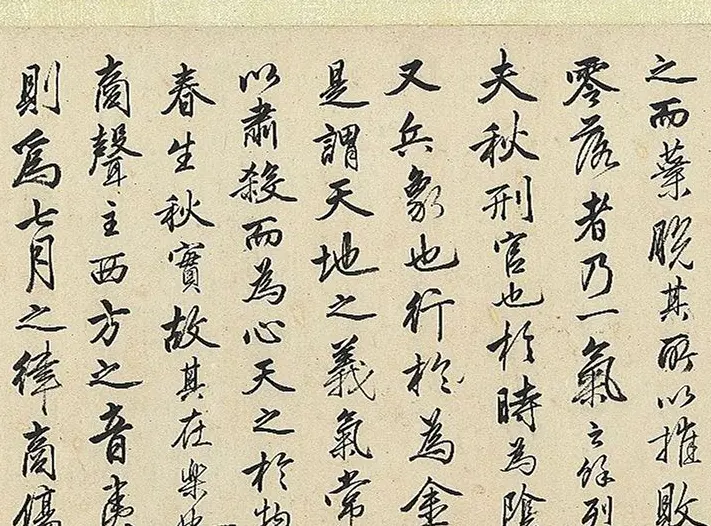 之而葉脫其所以摧敗
零落者乃一氣之餘烈
夫秋刑官也於時為陰
又兵象也行於為金
是謂天地之義氣常
以肅殺而為心天之於物
春生秋實故其在樂也
商聲主西方之音夷
則為七月之律商傷